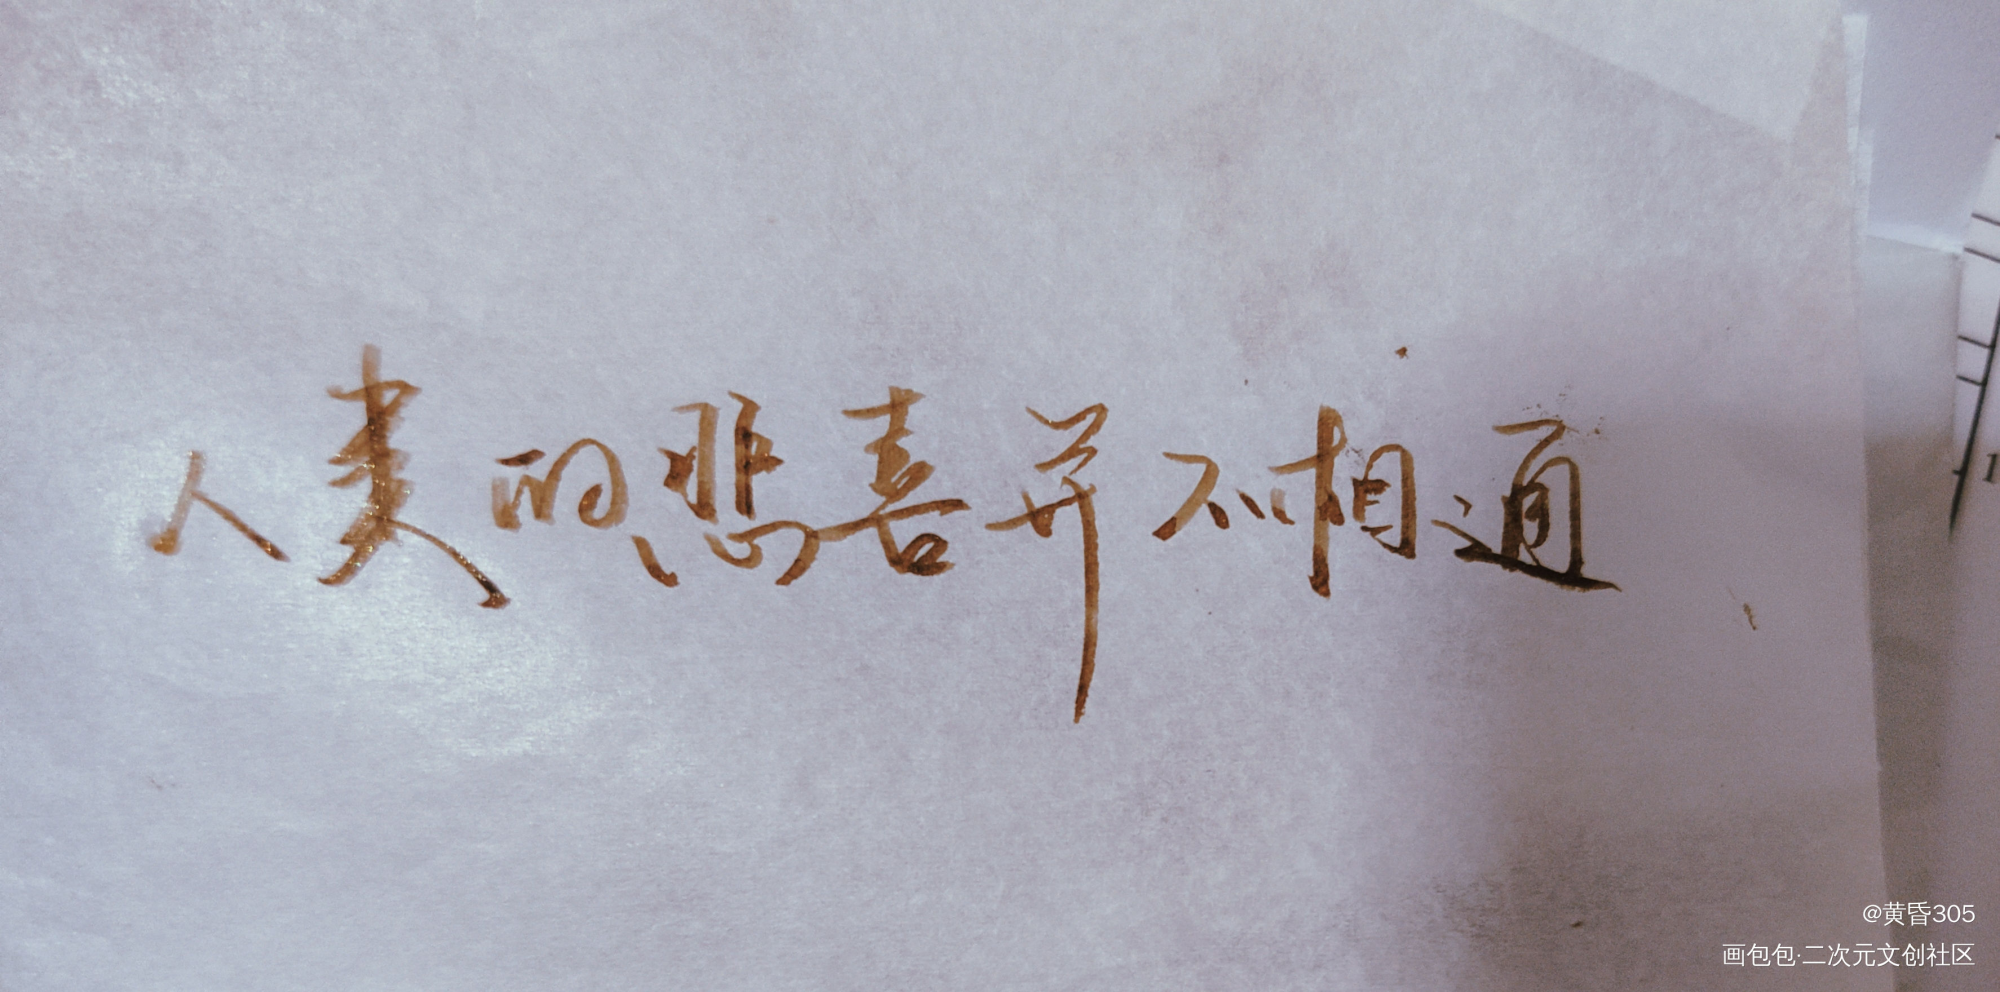 人类的悲喜并不相通
1
@黄昏305
画包包·二次元文创社区